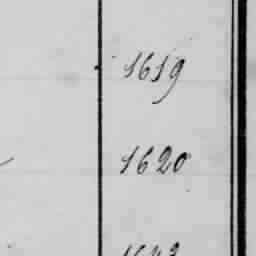 1619
1620